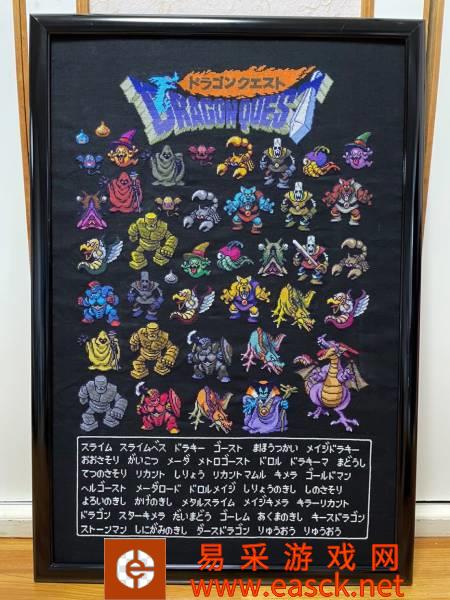 ドラゴンクエスト
DRAGON QUEST
スライム スライムベス ドラキー ゴースト まほうつかい メイジドラキー
おおさそり がいこつ メーダ メトロゴースト ドロル ドラキーマ まどうし
てつのさそり リカント しりょう リカントマムル キメラ ゴールドマン
ヘルゴースト メーダロード ドロルメイジ しりょうのきし しのさそり
よろいのきし かげのきし メタルスライム メイジキメラ キラーリカント
ドラゴン スターキメラ だいまどう ゴーレム あくまのきし キースドラゴン
ストーンマン しにがみのきし ダースドラゴン りゅうおう りゅうおう
易采游戏网
www.easck.net